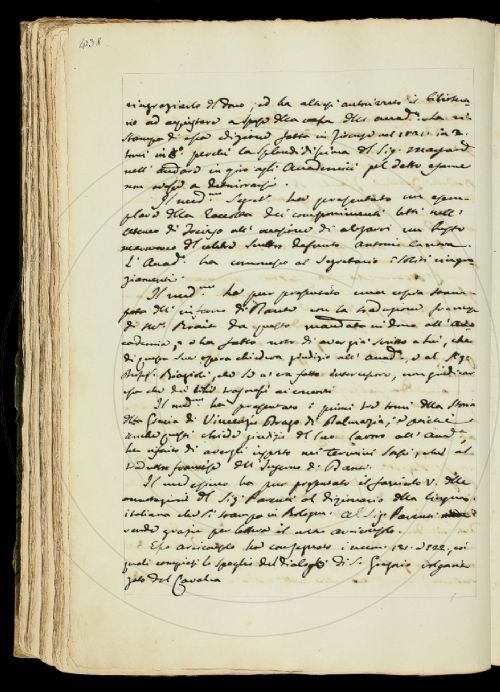 438
ringraziato del dono, ed ha altresì autorizzato il bibliote-
rio ad acquistare a spese della cassa dell' Accad.ª la ri-
stampa di essa edizione fatta in Firenze nel 1821. in 2.
tomi in 8.º perchè la splendidissima del Sig.
nell' andare in giro agli Accademici pel detto esame
non a
Il med.mo Segret.º ha presentato un esem-
plare della Raccolta dei componimenti letti nell'
Ateneo di Treviso all' occasione di alzarvi un busto
marmoreo del celebre defunto Antonio Canova.
L' Accad.ª ha commesso al Segretario i soliti ringra-
ziamenti.
Il med.mo ha pur presentato una copia stam-
pata dell' inferno di Dante con la traduzione francese
di M.r da questo mandata in dono all' Ac-
cademia, e ha fatto noto di aver già scritto a lui, che
di sua opera chiedeva giudizio all' Accad.ª, e al Sig.
Profess. Biagioli, che
che dei libri
Il med.mo ha presentato i primi tre tomi della Storia
della Grecia di Vincenzo Drago di Dalmazia, e poichè
anche questi chiede giudizio del suo lavoro all' Accad.ª,
ha riferito di avergli risposto nei termini stessi, che al
traduttor francese dell' Inferno di Dante.
Il medesimo ha pur presentato il fascicolo V. delle
annotazioni del Sig. Parenti al dizionario della lingua
italiana che si stampa in Bologna. Al Sig. Parenti
rende grazie per lettera il
Esso ha consegnato i 121. e 122., coi
quali compiesi lo spoglio del dialogo di S. Gregorio volgariz-
zato dal Cavalca